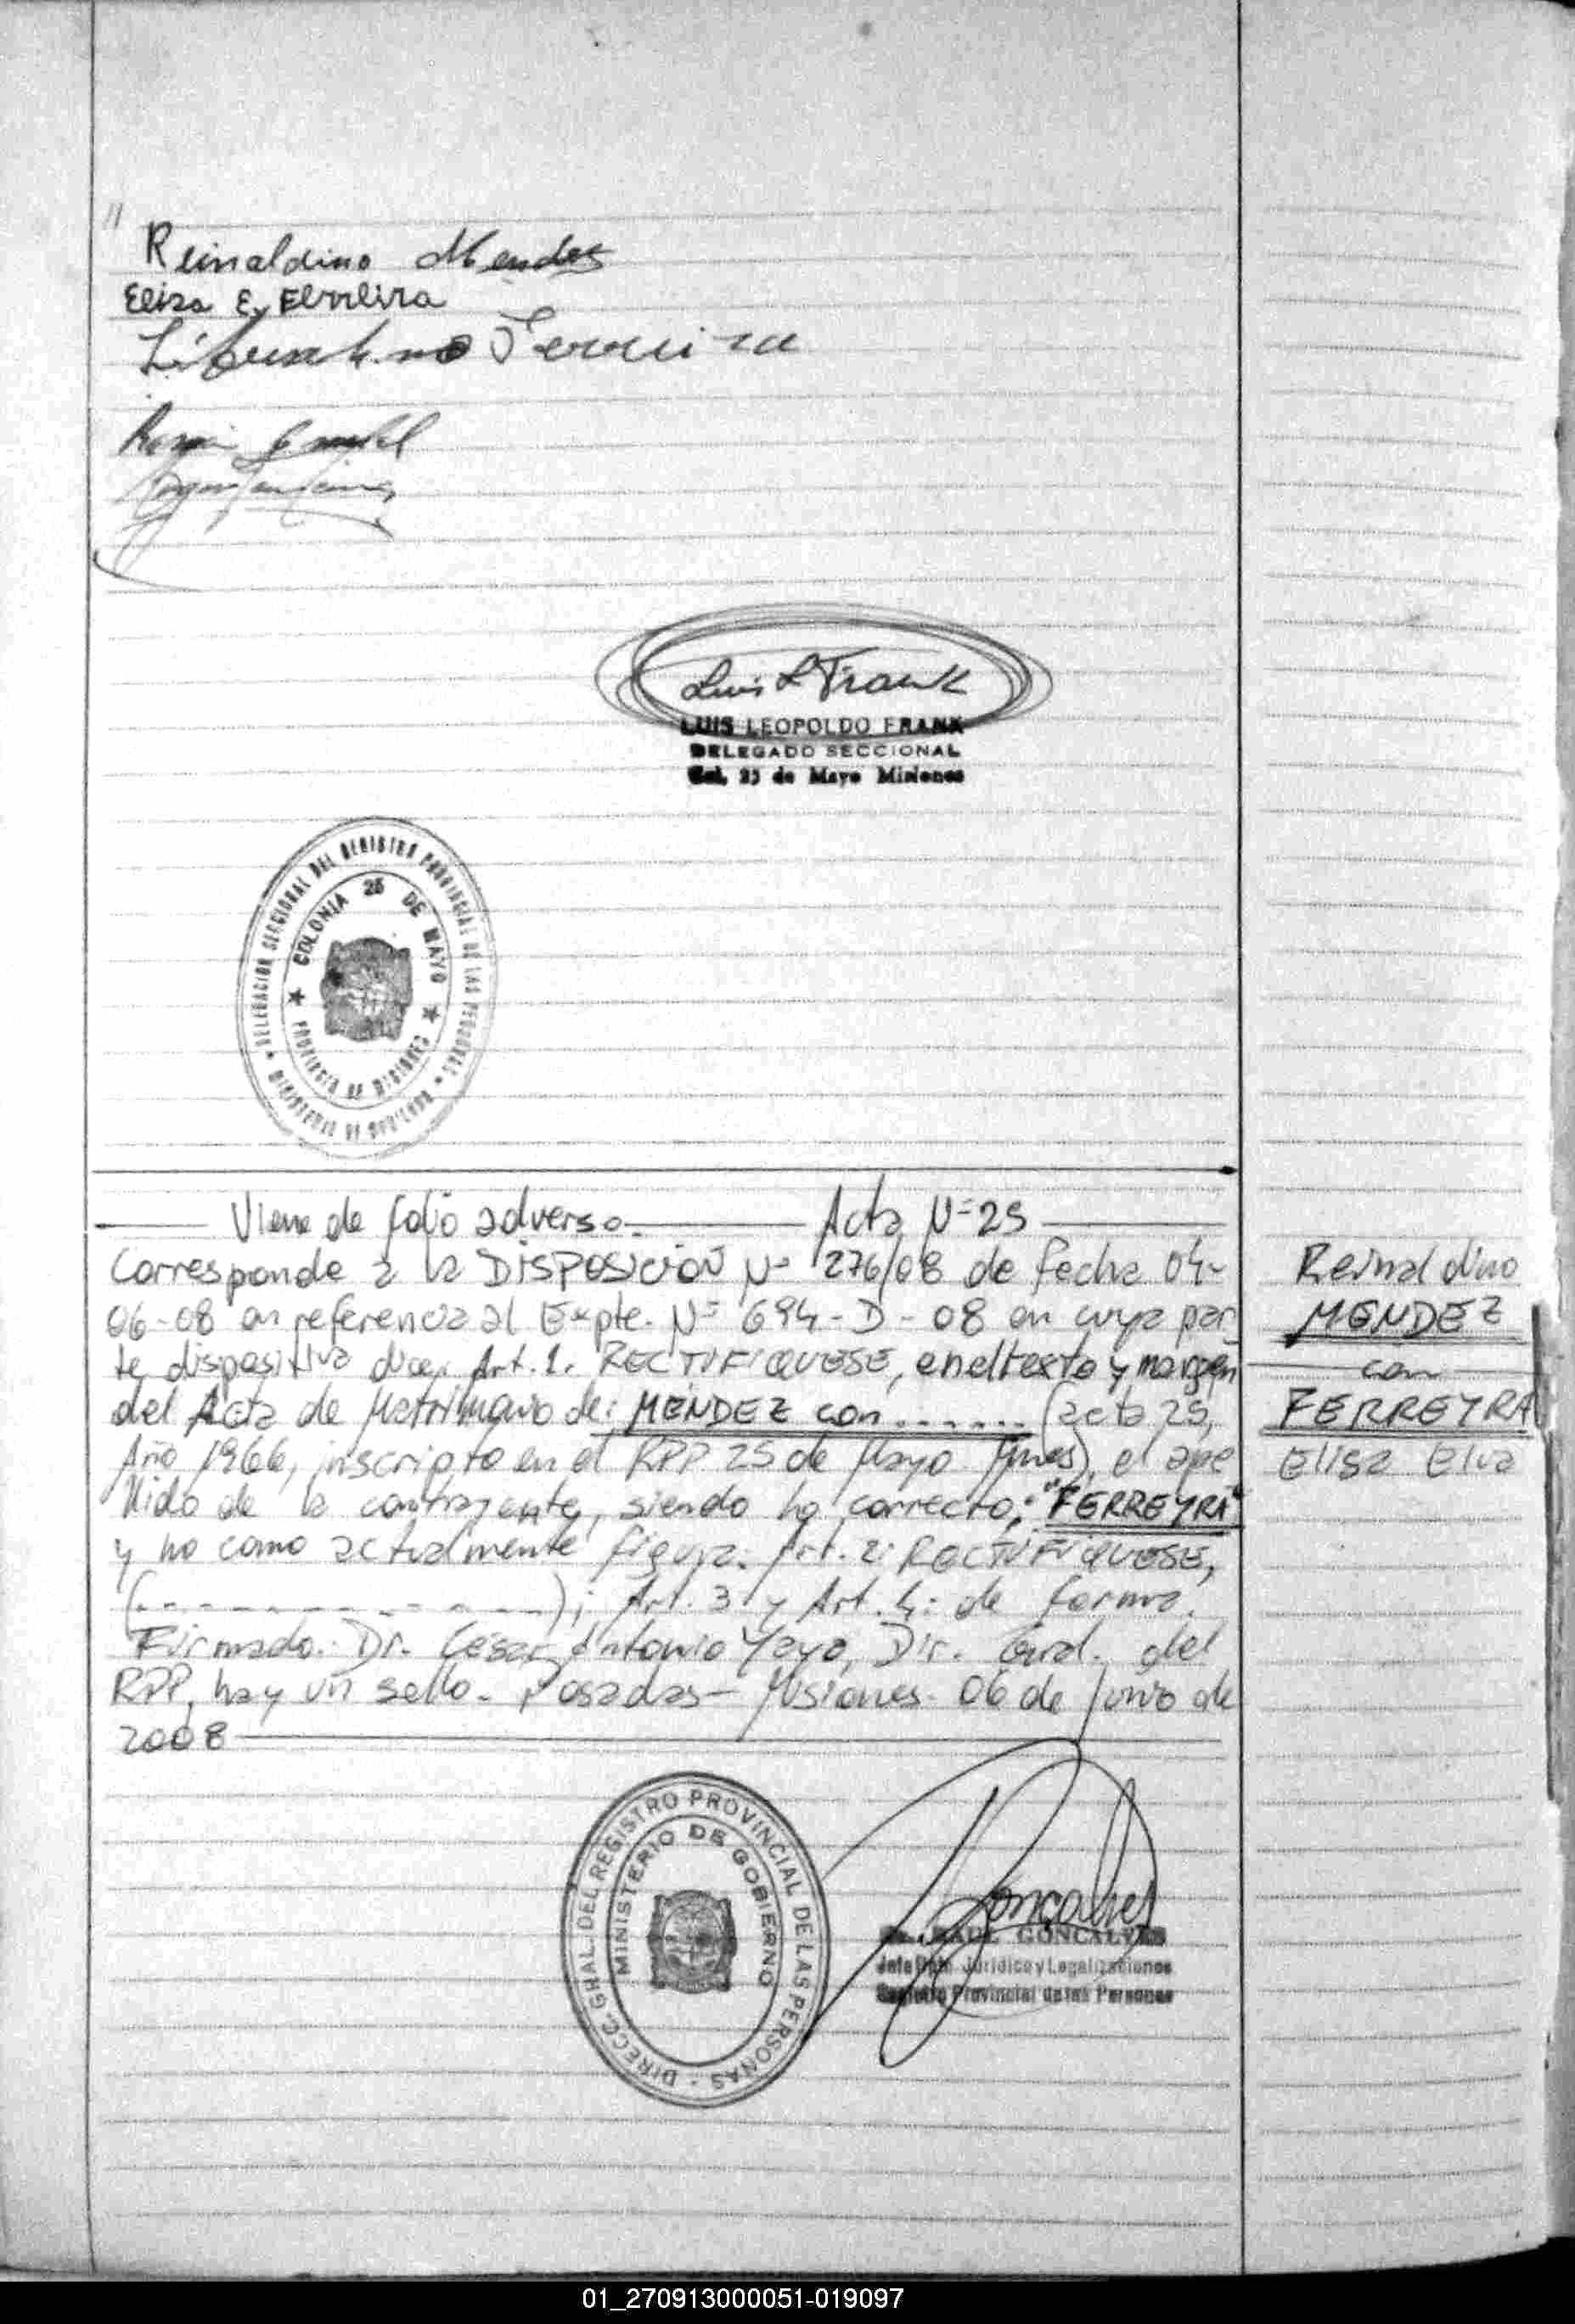 "
Reinaldino Mendez
Eliza E. Ferreira
Liburtino Ferreira
Luis L Frank
LUIS LEOPOLDO FRANK
DELEGADO SECCIONAL
Col. 25 de Mayo Misiones
DELEGACION SECCIONAL DEL REGISTRO PROVINCIAL DE LAS PERSONAS
MINISTERIO DE GOBIERNO
COLONIA 25 DE MAYO
PROVINCIA DE MISIONES
Viene de folio adverso. Acta Nº 25
Corresponde a la DISPOSICION Nº 276/08 de fecha 04-
06-08 en referencia al Expte. Nº 694-D-08 en cuya par
te dispositiva dice: Art. 1. RECTIFIQUESE, en el texto y margen
del Acta de Matrimonio de: MENDEZ con....... (acta 25,
Año 1966, inscripto en el RPP 25 de Mayo Mnes), el ape
llido de la contrayente, siendo lo correcto: "FERREYRA"
y no como actualmente figura. Art. 2: RECTIFIQUESE,
(- - - - - - - - - -); Art. 3 y Art. 4: de forma.
Firmado: Dr. César Antonio Yaya, Dir. Gral. del
RPP, hay un sello. Posadas - Misiones. 06 de Junio de
2008
Reinaldino
MENDEZ
con
FERREYRA
Elisa Elva
DIRECC. GRAL. DEL REGISTRO PROVINCIAL DE LAS PERSONAS -
MINISTERIO DE GOBIERNO
Goncalves
RAUL GONCALVES
Jefe Dpto. Jurídico y Legalizaciones
Registro Provincial de las Personas
01_270913000051-019097